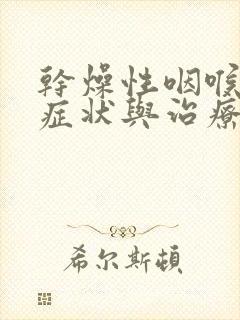 幹燥性咽喉
症状與治療
希尔斯頓